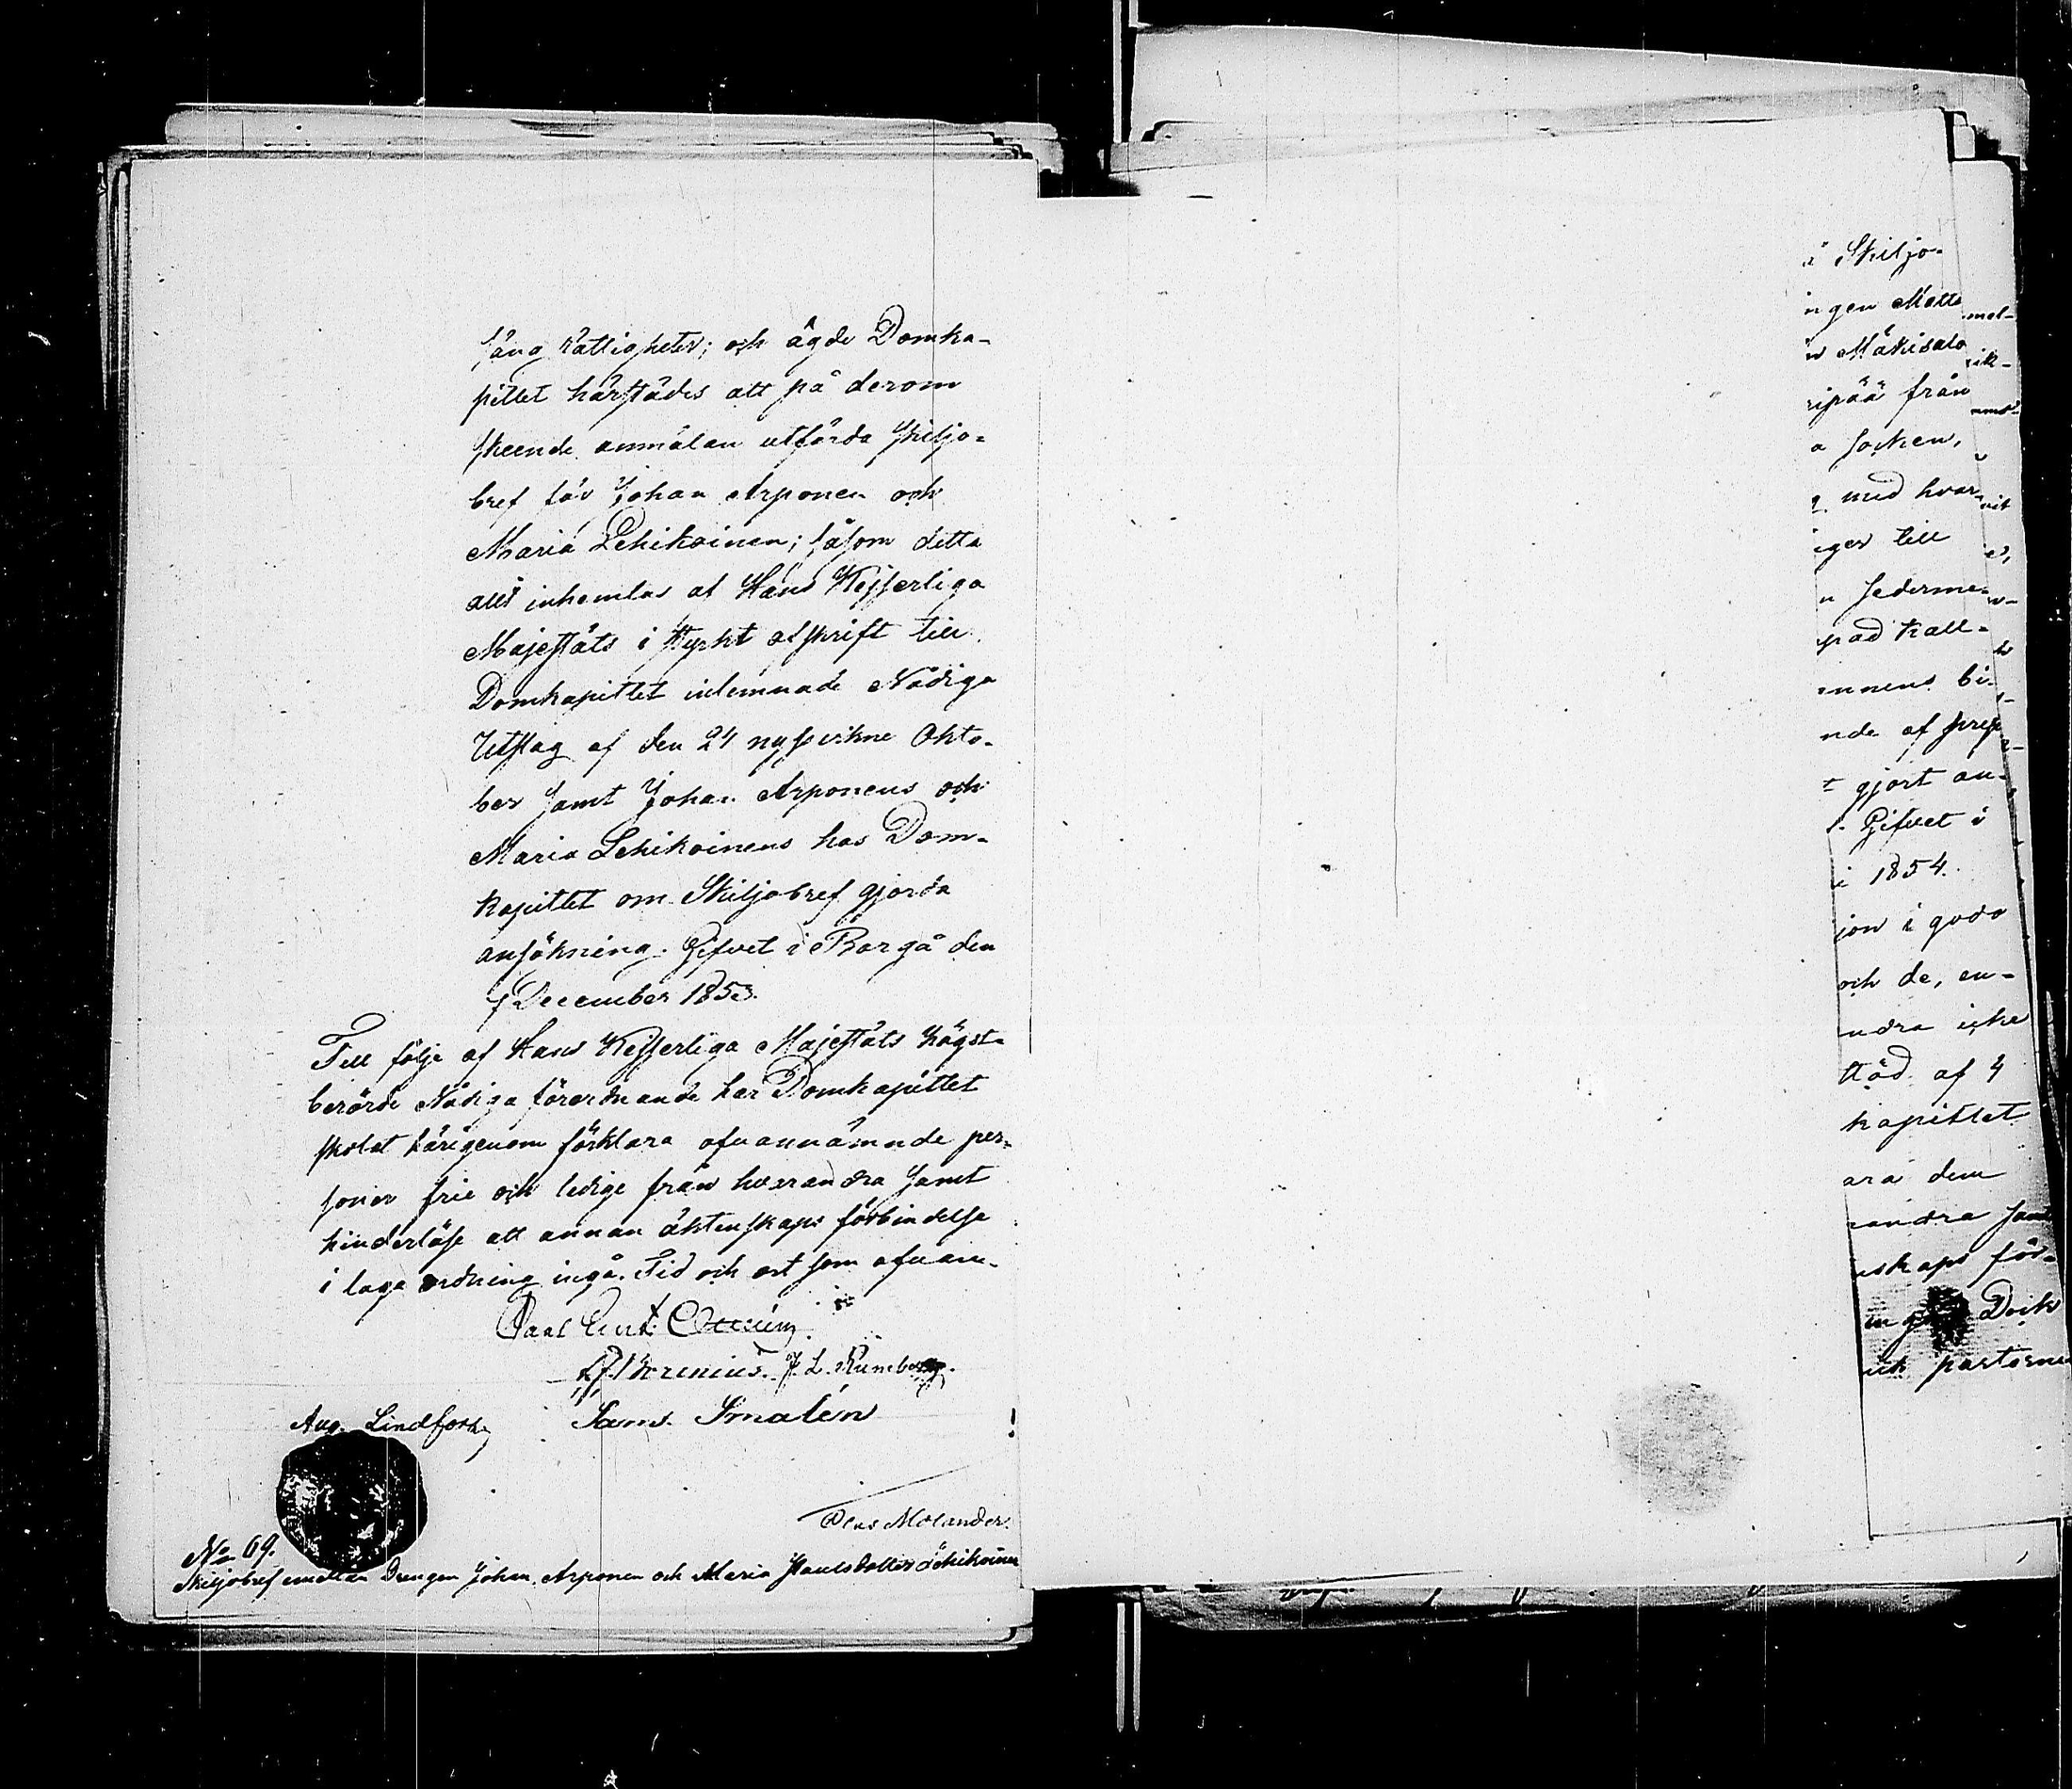 säng rättigheter; och ägde Domka-
pitlet härstädes att på derom
skeende anmälan utfärda skiljo-
bref för Johan Arponen och
Maria Lehikoinen; såsom detta
allt inhemtas af Hans Kejserliga
Majestäts i styrkt afskrift till
Domkapitlet inlemnade Nådiga
Utslag af den 24 nysvikne Okto-
ber samt Johan Arponens och
Maria Lehikoinens hos Dom-
kapitlet om Skiljobref gjorda
ansökning. Gifvet i Borgå den
7 December 1853.
Till följe af Hans Kejserliga Majestäts högst-
berörde Nådiga förordnande har Domkapitlet
skolat härigenom förklara ofvannämnde per-
soner frie och ledige från hvarandra samt
hinderlöse att annan äktenskaps förbindelse
i laga ordning ingå. Tid och ort som ofvan.
Carl Gust. Ottelin
Borenius. J. L. Runeberg.
Aug. Lindfors Sams. Smalén
Molander.
No 69.
Skiljobref emellan Drengen Johan Arponen och Maria Paulsdotter Lehikoinen
å Skiljo-
ngen Matts
Mäkisalo
ripää från
a socken,
med hvar
iger till
n federme
pad kall-
nnens bi-
nde af
t gjort an-
Gifvet i
i 1854.
jon i godo
och de, en-
ndra icke
töd af 4
kapitlet
ara dem
randra sam
nskaps för-
Dock
ick parterne